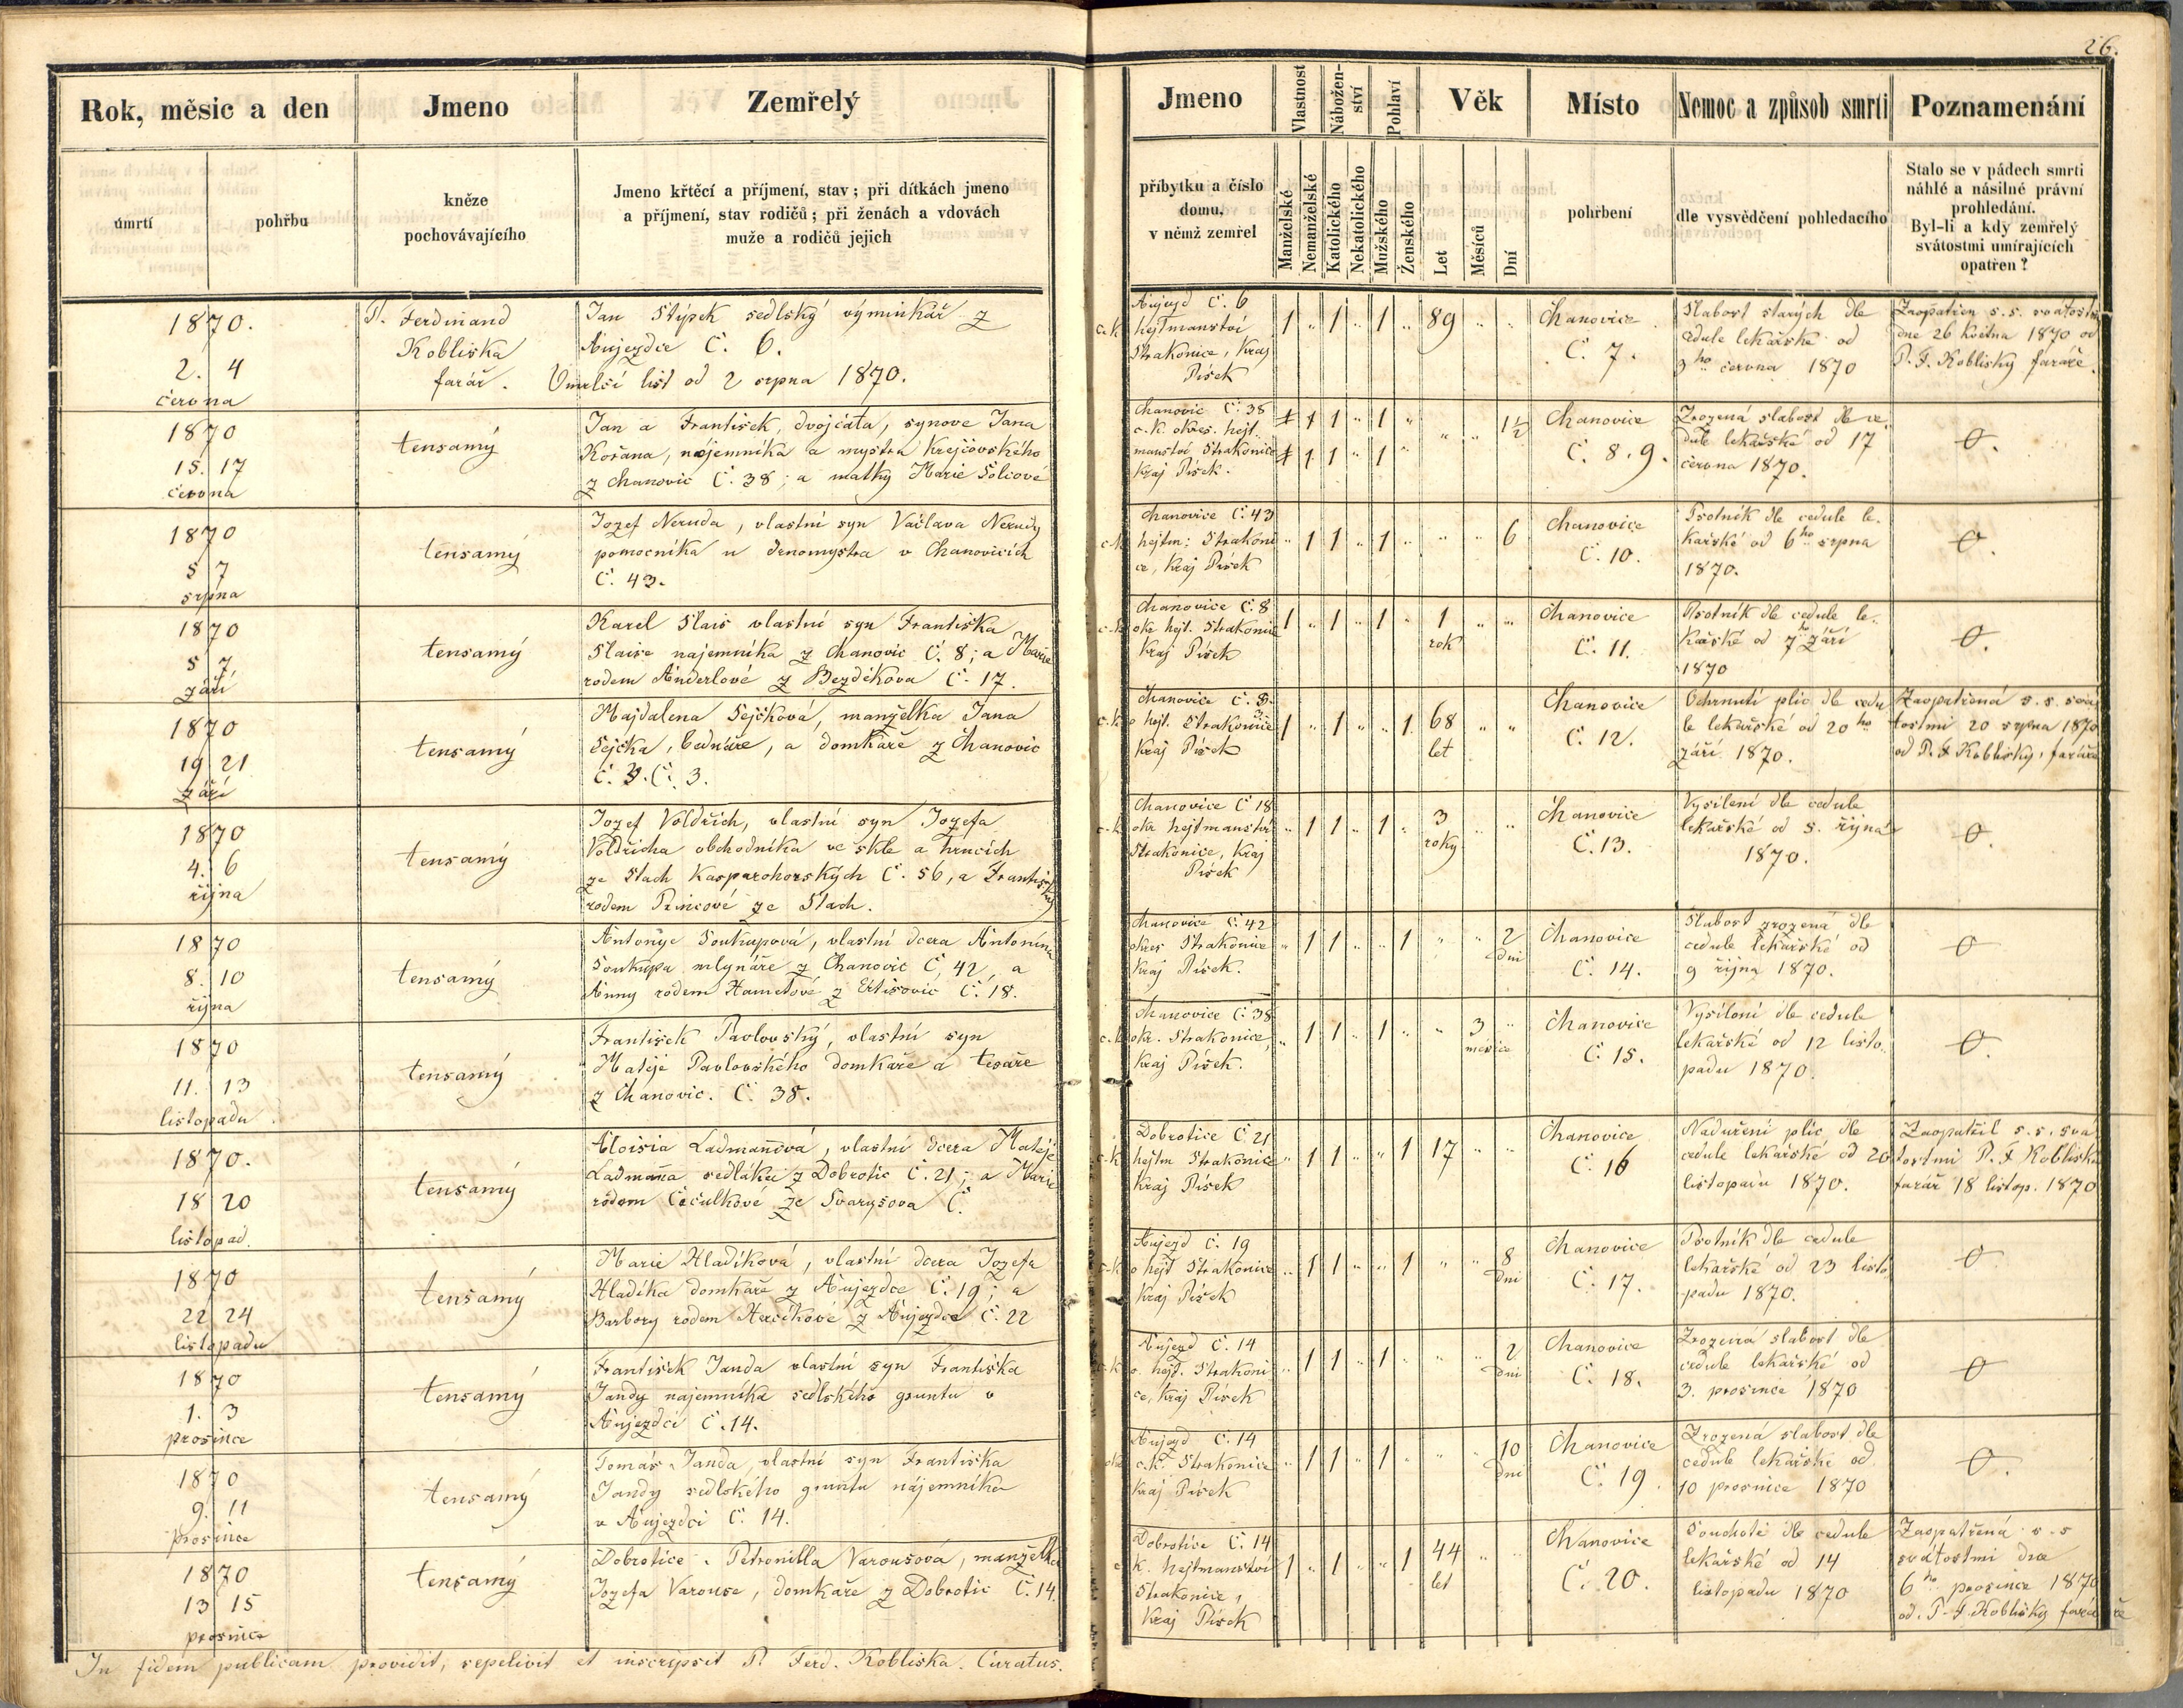 26.
Rok, měsic a den
Jmeno
Zemřelý
úmrtí
pohřbu
kněze
pochovávajícího
Jmeno křtěcí a příjmení, stav; při dítkách jmeno
a příjmení, stav rodičů; při ženách a vdovách
muže a rodičů jejich
Jmeno
Vlastnost
Nábožen-
ství
Pohlaví
Věk
Místo
Nemoc a způsob smrti
Poznamenání
příbytku a číslo
domu,
v němž zemřel
Manželské
Nemanželské
Katolického
Nekatolického
Mužského
Ženského
Let
Měsíců
Dní
pohřbení
dle vysvědčení pohledacího
Stalo se v pádech smrti
náhlé a násilné právní
prohledání.
Byl-li a kdy zemřelý
svátostmi umírajících
opatřen?
1870.
2. 4
června
P. Ferdinand
Kobliska
farář.
Jan Stýpek sedlský výminkář z
Aujezdce Č. 6.
Umrlčí list od 2 srpna 1870.
Aujezd Č. 6
c.k. hejtmanství
Strakonice, Kraj
Písek
1 " 1 " 1 " 89 " "
Chanovice
Č. 7.
Slabost starých dle
cedule lekařské od
3ho června 1870
Zaopatřen s.s. svátostmi
dne 26 května 1870 od
P. F. Koblisky faráře.
1870
15. 17
června
tensamý
Jan a František, dvojčata, synove Jana
Kořána, nájemníka a mystra krejčovského
z Chanovic Č. 38; a matky Marie
Chanovic Č. 38
c.k. okres. hejt.
manství Strakonice
Kraj Písek.
1 1 " 1 " " " 1½
1 1 " 1 "
Chanovice
Č. 8. 9.
Zrozená slabost dle ce
dule lekařské od 17
června 1870.
0.
1870
5 7
srpna
tensamý
Jozef Neruda, vlastní syn Václava Nerudy
pomocníka u drnomystra v Chanovicích
Č. 43.
Chanovice Č. 43
c.k. hejtm: Strakoni
ce, Kraj Písek
" 1 1 " 1 " " " 6
Chanovice
Č. 10.
Psotník dle cedule le.
kařské od 6ho srpna
1870.
0.
1870
5 7
září
tensamý
Karel Slais vlastní syn Františka
Slaise najemníka z Chanovic Č. 8; a Marie
rodem Anderlové z Bezděkova Č. 17.
Chanovice Č. 8
c.k. okr hejt. Strakonice
Kraj Písek
1 " 1 " 1 " 1 " "
rok
Chanovice
Č. 11.
Psotník dle cedule le.
kařské od 7ho září
1870
0.
1870
19 21
září
tensamý
Majdalena Sejčková, manželka Jana
Sejčka, bednáře, a domkáře z Chanovic
Č. 3. Č. 3.
Chanovice Č. 3.
c.k. o hejt. Strakonice
Kraj Písek
1 " 1 " " 1 68 " "
let
Chanovice
Č. 12.
Ochrnutí plic dle cedu
le lekařské od 20ho
září 1870.
Zaopatřená s.s. svá
tostmi 20 srpna 1870
od P. F. Koblisky, faráře
1870
4. 6
října
tensamý
Jozef Voldřich, vlastní syn Jozefa
Voldřicha obchodníka ve skle a hrncích
ze Stach Kasparohorských Č. 56, a Františky
rodem Princové ze Stach.
Chanovice Č 18
c.k. okr hejtmanství
Strakonice, Kraj
Písek
" 1 1 " 1 " 3 " "
roky
Chanovice
Č. 13.
Vysílení dle cedule
lekařské od 5. října
1870.
0.
1870
8. 10
října
tensamý
Antonye Soukupová, vlastní dcera Antonína
Soukupa mlynáře z Chanovic Č. 42, a
Anny rodem Hametové z Č. 18.
Chanovice Č. 42
okres Strakonice
Kraj Písek.
" 1 1 " " 1 " " 2
dni
Chanovice
Č. 14.
Slabost zrozená dle
cedule lekařské od
9 října 1870.
0
1870
11. 13
listopadu
tensamý
František Pavlovský, vlastní syn
Matěje Pavlovského domkáře a tesaře
z Chanovic. Č. 38.
Chanovice Č. 38
c.k. okr. Strakonice,
Kraj Písek.
" 1 1 " 1 " " 3 "
měsíce
Chanovice
Č. 15.
Vysílení dle cedule
lekařské od 12 listo
padu 1870.
0.
1870.
18 20
listopad.
tensamý
Aloisia Ladmanová, vlastní dcera Matěje
Ladmana sedláka z Dobrotic Č. 21; a Marie
rodem ze Svaryšova Č.
Dobrotice Č. 21
c.k. hejtm Strakonice
Kraj Písek
" 1 1 " " 1 17 " "
Chanovice
Č. 16
Naduření plic dle
cedule lekařské od 20
listopadu 1870.
Zaopatřil s.s. svá
tostmi P. F. Kobliska
farář 18 listop. 1870
1870
22 24
listopadu
tensamý
Marie Hladíková, vlastní dcera Jozefa
Hladíka domkáře z Aujezdce Č. 19; a
Barbory rodem Herčíkové z Aujezdce Č. 22
Aujezd Č. 19
c.k. o hejt Strakonice
Kraj Písek
" 1 1 " " 1 " " 8
dni
Chanovice
Č. 17.
Psotník dle cedule
lekařské od 23 listo
padu 1870.
0
1870
1. 3
prosince
tensamý
František Janda vlastní syn Františka
Jandy najemníka sedlského gruntu v
Aujezdci Č. 14.
Aujezd Č. 14
c.k. o. hejt. Strakoni
ce, Kraj Písek
" 1 1 " 1 " " " 2
dni
Chanovice
Č. 18.
Zrozená slabost dle
cedule lekařské od
3. prosince 1870
0
1870
9. 11
prosince
tensamý
Tomáš Janda, vlastní syn Františka
Jandy sedlského gruntu nájemníka
v Aujezdci Č. 14.
Aujezd Č. 14
c.k. Strakonice
Kraj Písek
" 1 1 " 1 " " " 10
dni
Chanovice
Č. 19.
Zrozená slabost dle
cedule lekařské od
10 prosince 1870
0.
1870
13 15
prosince
tensamý
Dobrotice. Petronilla Varousová, manželka
Jozefa Varouse, domkáře z Dobrotic Č. 14.
Dobrotice Č. 14
c. k. hejtmanství
Strakonice,
Kraj Písek
1 " 1 " " 1 44 " "
let
Chanovice
Č. 20.
Souchotě dle cedule
lekařské od 14
listopadu 1870
Zaopatřená s.s
svátostmi dne
6ho prosince 1870
od. P. F. Koblisky faráře
In fidem publicam providit, sepelivit et inscripsit P. Ferd. Kobliska. Curatus.